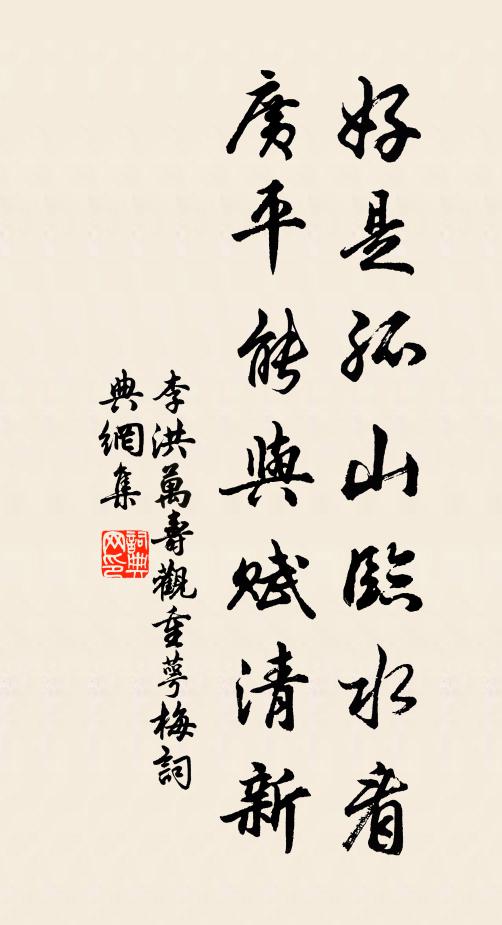 好是孤山臨水看
廣平能與賦清新
李洪萬壽觀重萼梅詞
典網集
詞典
网印